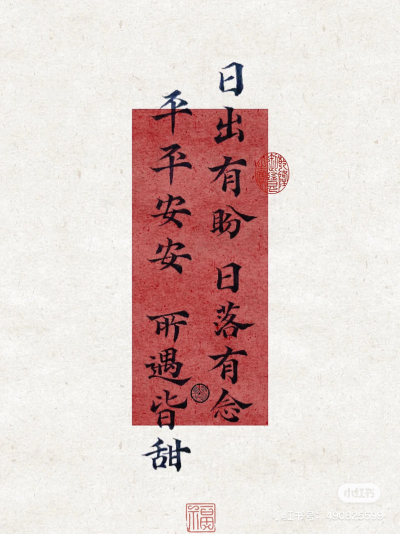 日出有盼 日落有念
平平安安 所遇皆甜
福
小红书